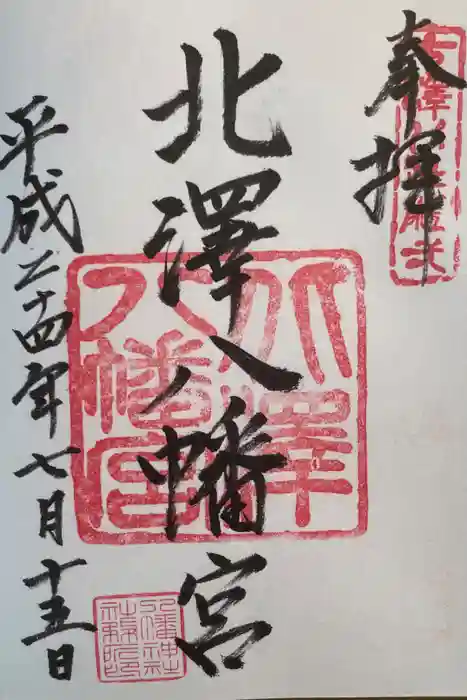 奉拝
北澤八幡宮
平成二十四年七月十五日
北澤八幡宮